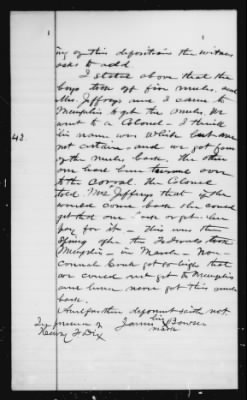 ing of this deposition the witness
asks to add
I stated above that the
boys took off five mules, and
Mr Jeffreys and I came to
Memphis to get the mules. We
went to a Colonel. I think
his name was White but am
42
not certain, and we got four
of the mules back. The other
one had been turned over
to the corral. The Colonel
told Mr Jeffreys that if he
would come back he could
get that one or get
pay for it - This was the
Spring after the Federals took
Memphis - in March - Non-
connah Creek got so high that
we could not get to Memphis
and have never got this mule
back.
And further deponent saith not
his
James X Bowen
mark
In presence of
Henry